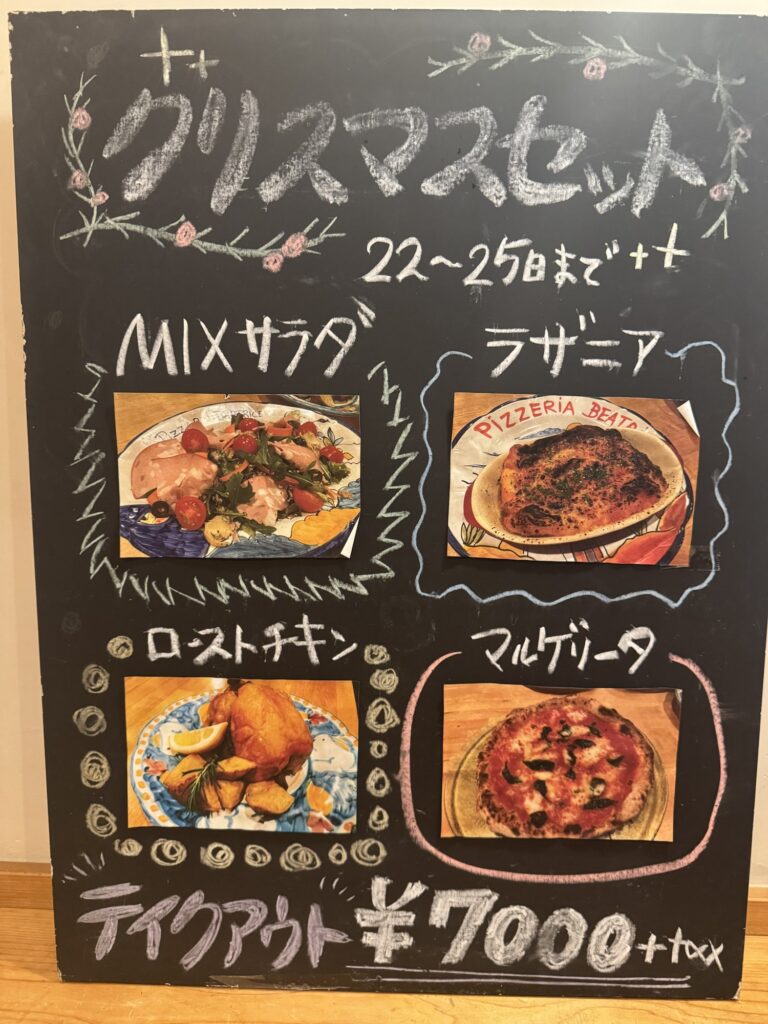 クリスマスセット
22〜25日まで
MIXサラダ
ラザニア
PIZZERIA BEAT
ローストチキン
マルゲリータ
テイクアウト ¥7000+tax